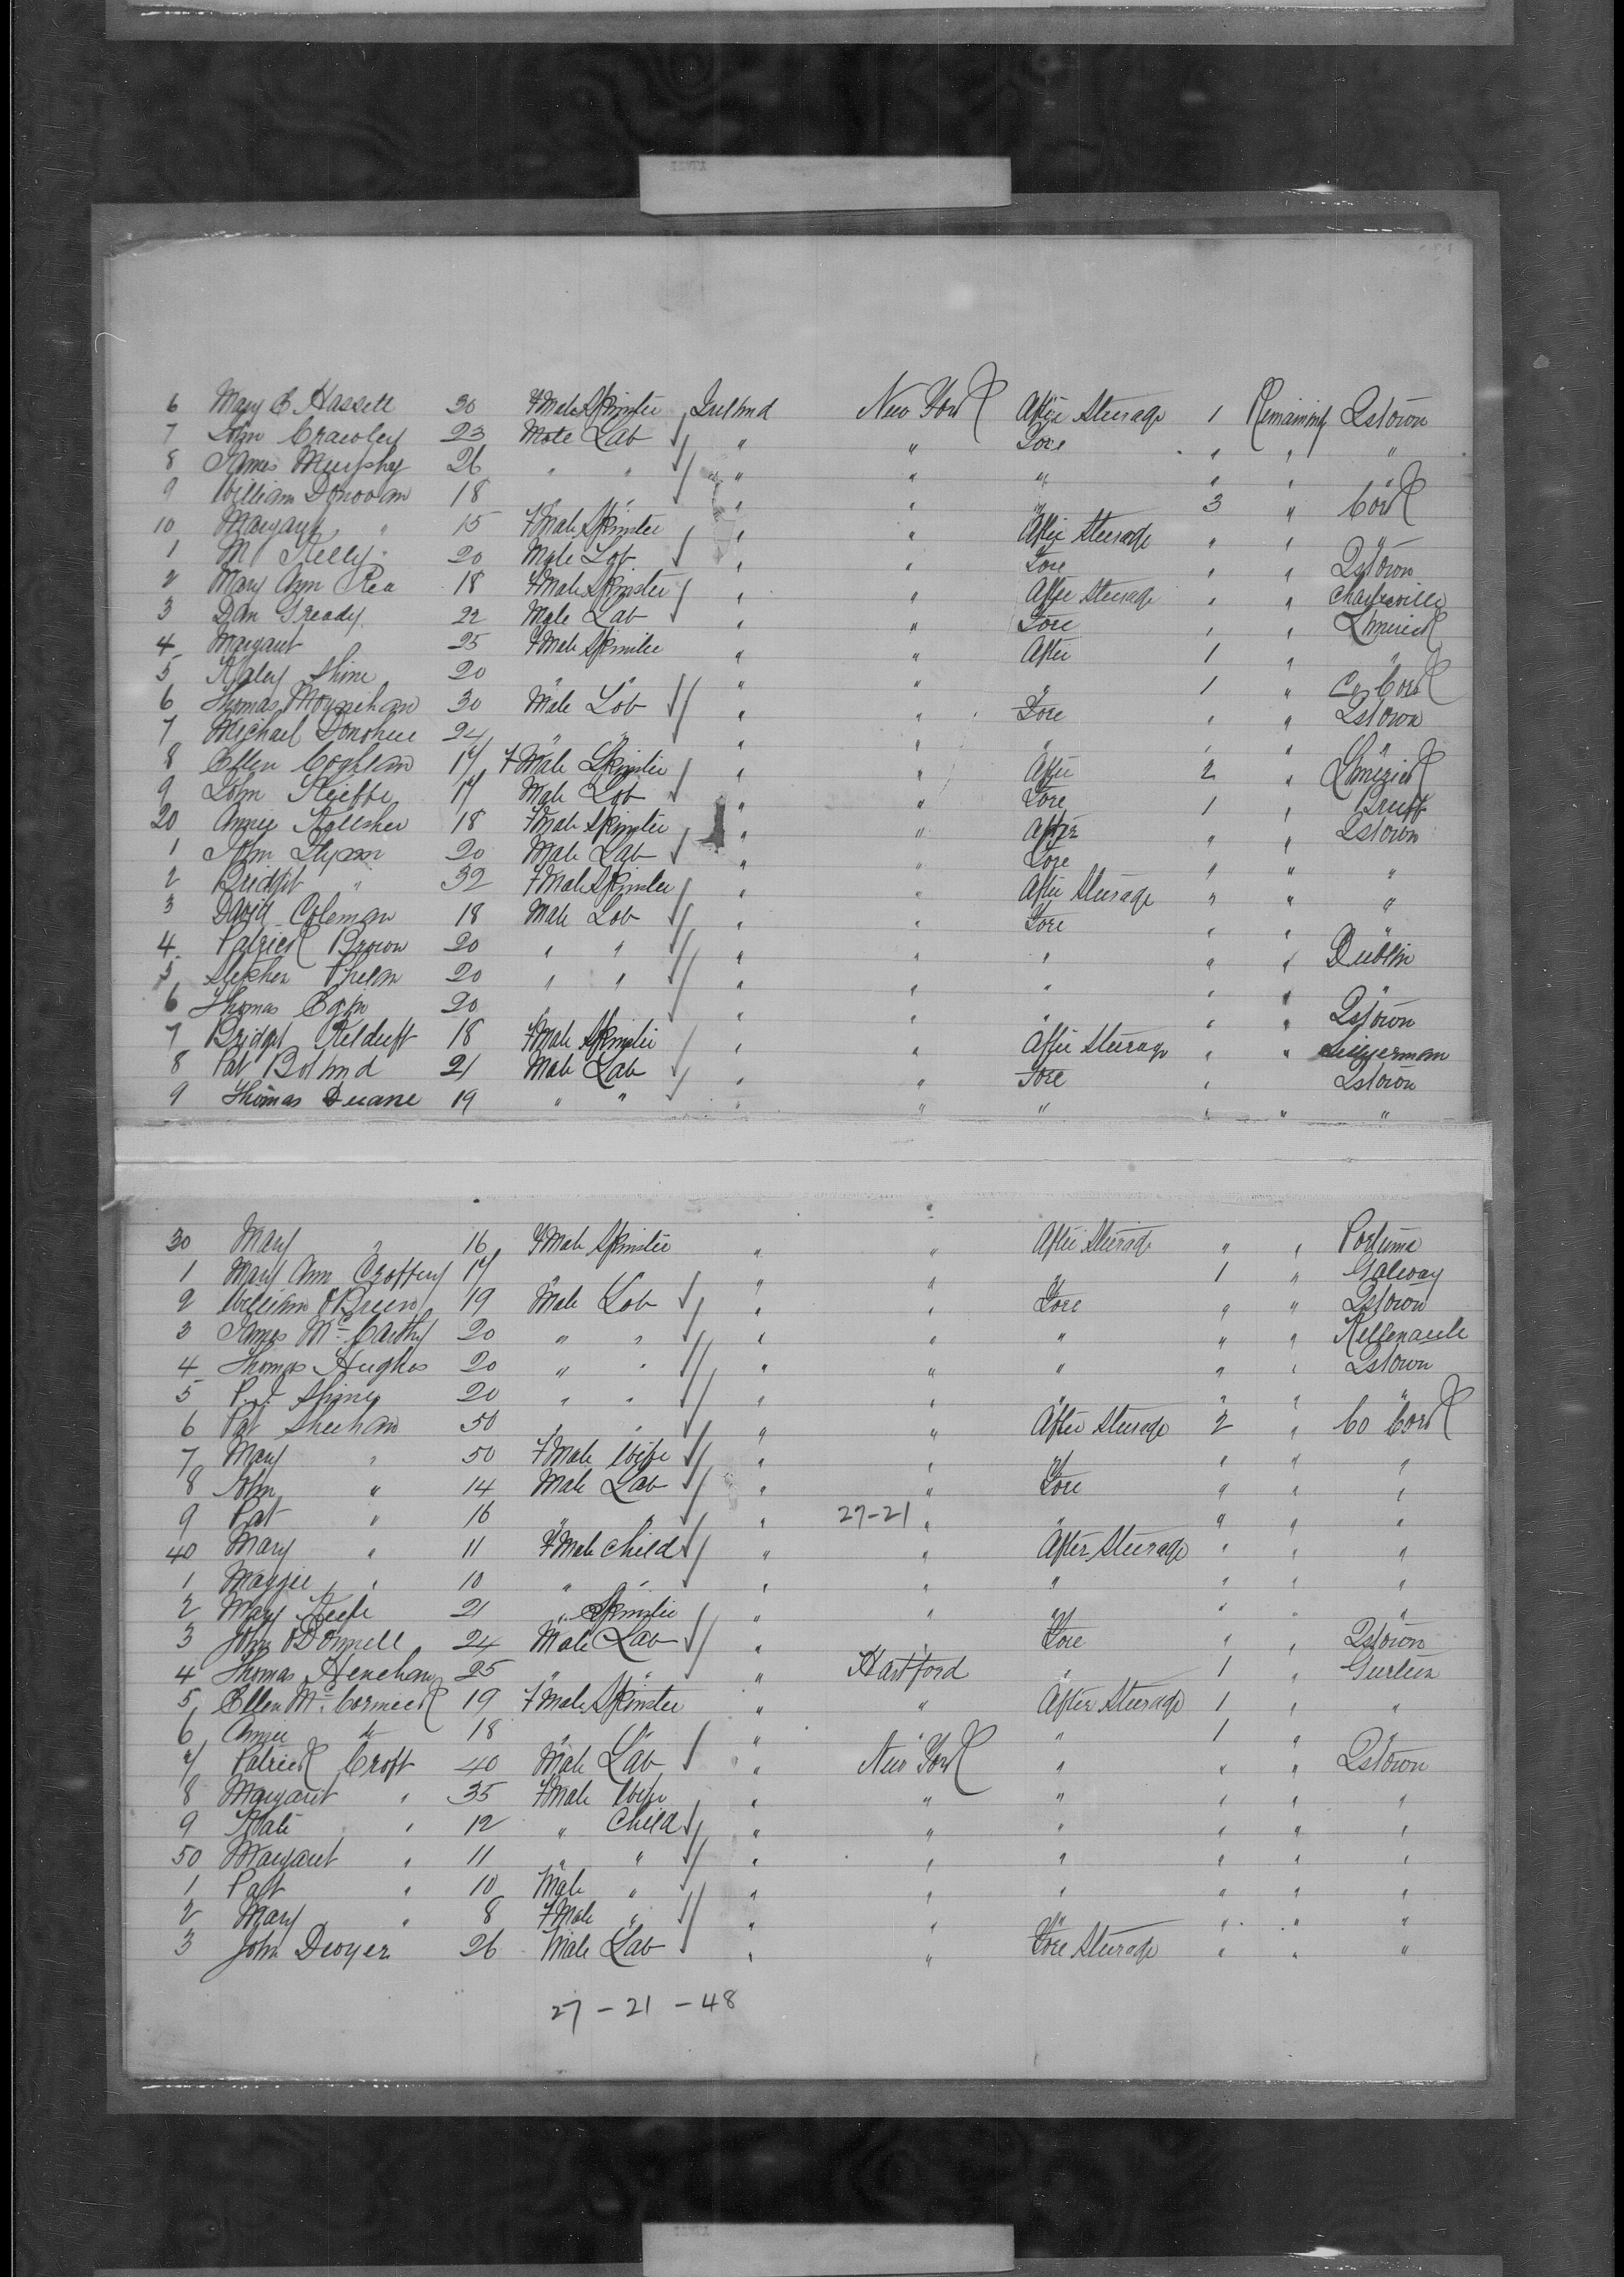 6 Mary E Hassett 30 F Male Spinster Ireland New York After Steerage 1 Remaining Qstown
7 John Crawley 23 Male Lab " " Fore " " "
8 James Murphy 26 " " " " " " "
9 William Donovan 18 " " " " 3 " Cork
10 Margaret " 15 F Male Spinster " " After Steerage " " "
1 M Kelly 20 Male Lab " " Fore " " Qstown
2 Mary Ann Rea 18 F Male Spinster " " After Steerage " " Charleville
3 Dan Gready 22 Male Lab " " Fore " " Limerick
4 Margaret 25 F Male Spinster " " After 1 " "
5 Shine 20 " " " " " 1 " Co Cork
6 Thomas Moynihan 30 Male Lab " " Fore " " Qstown
7 Michael Donohue 24 " " " " " " " "
8 Ellen Coghlan 17 F Male Spinster " " After 2 " Limerick
9 John Keeffe 17 Male Lab " " Fore 1 " Bruff
20 Annie Kelleher 18 F Male Spinster " " After " " Qstown
1 John Flynn 20 Male Lab " " Fore " " "
2 Bridget " 32 F Male Spinster " " After Steerage " " "
3 David Coleman 18 Male Lab " " Fore " " "
4 Patrick Brown 20 " " " " " " " Dublin
5 Stephen Phelan 20 " " " " " " " "
6 Thomas Egan 20 " " " " " " Qstown
7 Bridget Kilduff 18 F Male Spinster " " After Steerage " "
8 Pat Boland 21 Male Lab " " Fore " " Qstown
9 Thomas Duane 19 " " " " " " " "
30 Mary " 16 F Male Spinster " " After Steerage " " Portuma
1 Mary Ann 17 " " " " 1 " Galway
2 William O'Brien 19 Male Lab " " Fore " " Qstown
3 James McCarthy 20 " " " " " " "
4 Thomas Hughes 20 " " " " " " " Qstown
5 Pat Shine 20 " " " " " " " "
6 Pat Sheehan 50 " " " " After Steerage 2 " Co Cork
7 Mary " 50 F Male Wife " " " " " "
8 John " 14 Male Lab " " Fore " " "
9 Pat " 16 " " " 27-21 " " " " "
40 Mary " 11 F Male Child " " After Steerage " " "
1 Maggie " 10 " " " " " " " "
2 Mary Keefe 21 " Spinster " " " " " "
3 John O'Donnell 24 Male Lab " " Fore " " Qstown
4 Thomas Henehan 25 " " " Hartford " 1 " Gurteen
5 Ellen McCormick 19 F Male Spinster " " After Steerage 1 " "
6 Annie do 18 " " " " 1 "
7 Patrick Croft 40 Male Lab " New York " " " Qstown
8 Margaret " 35 F Male Wife " " " " " "
9 Kate " 12 " Child " " " " " "
50 Margaret " 11 " " " " " " " "
1 Patt " 10 Male " " " " " " "
2 Mary " 8 F Male " " " " " " "
3 John Dwyer 26 Male Lab " " Fore Steerage " " "
27-21-48